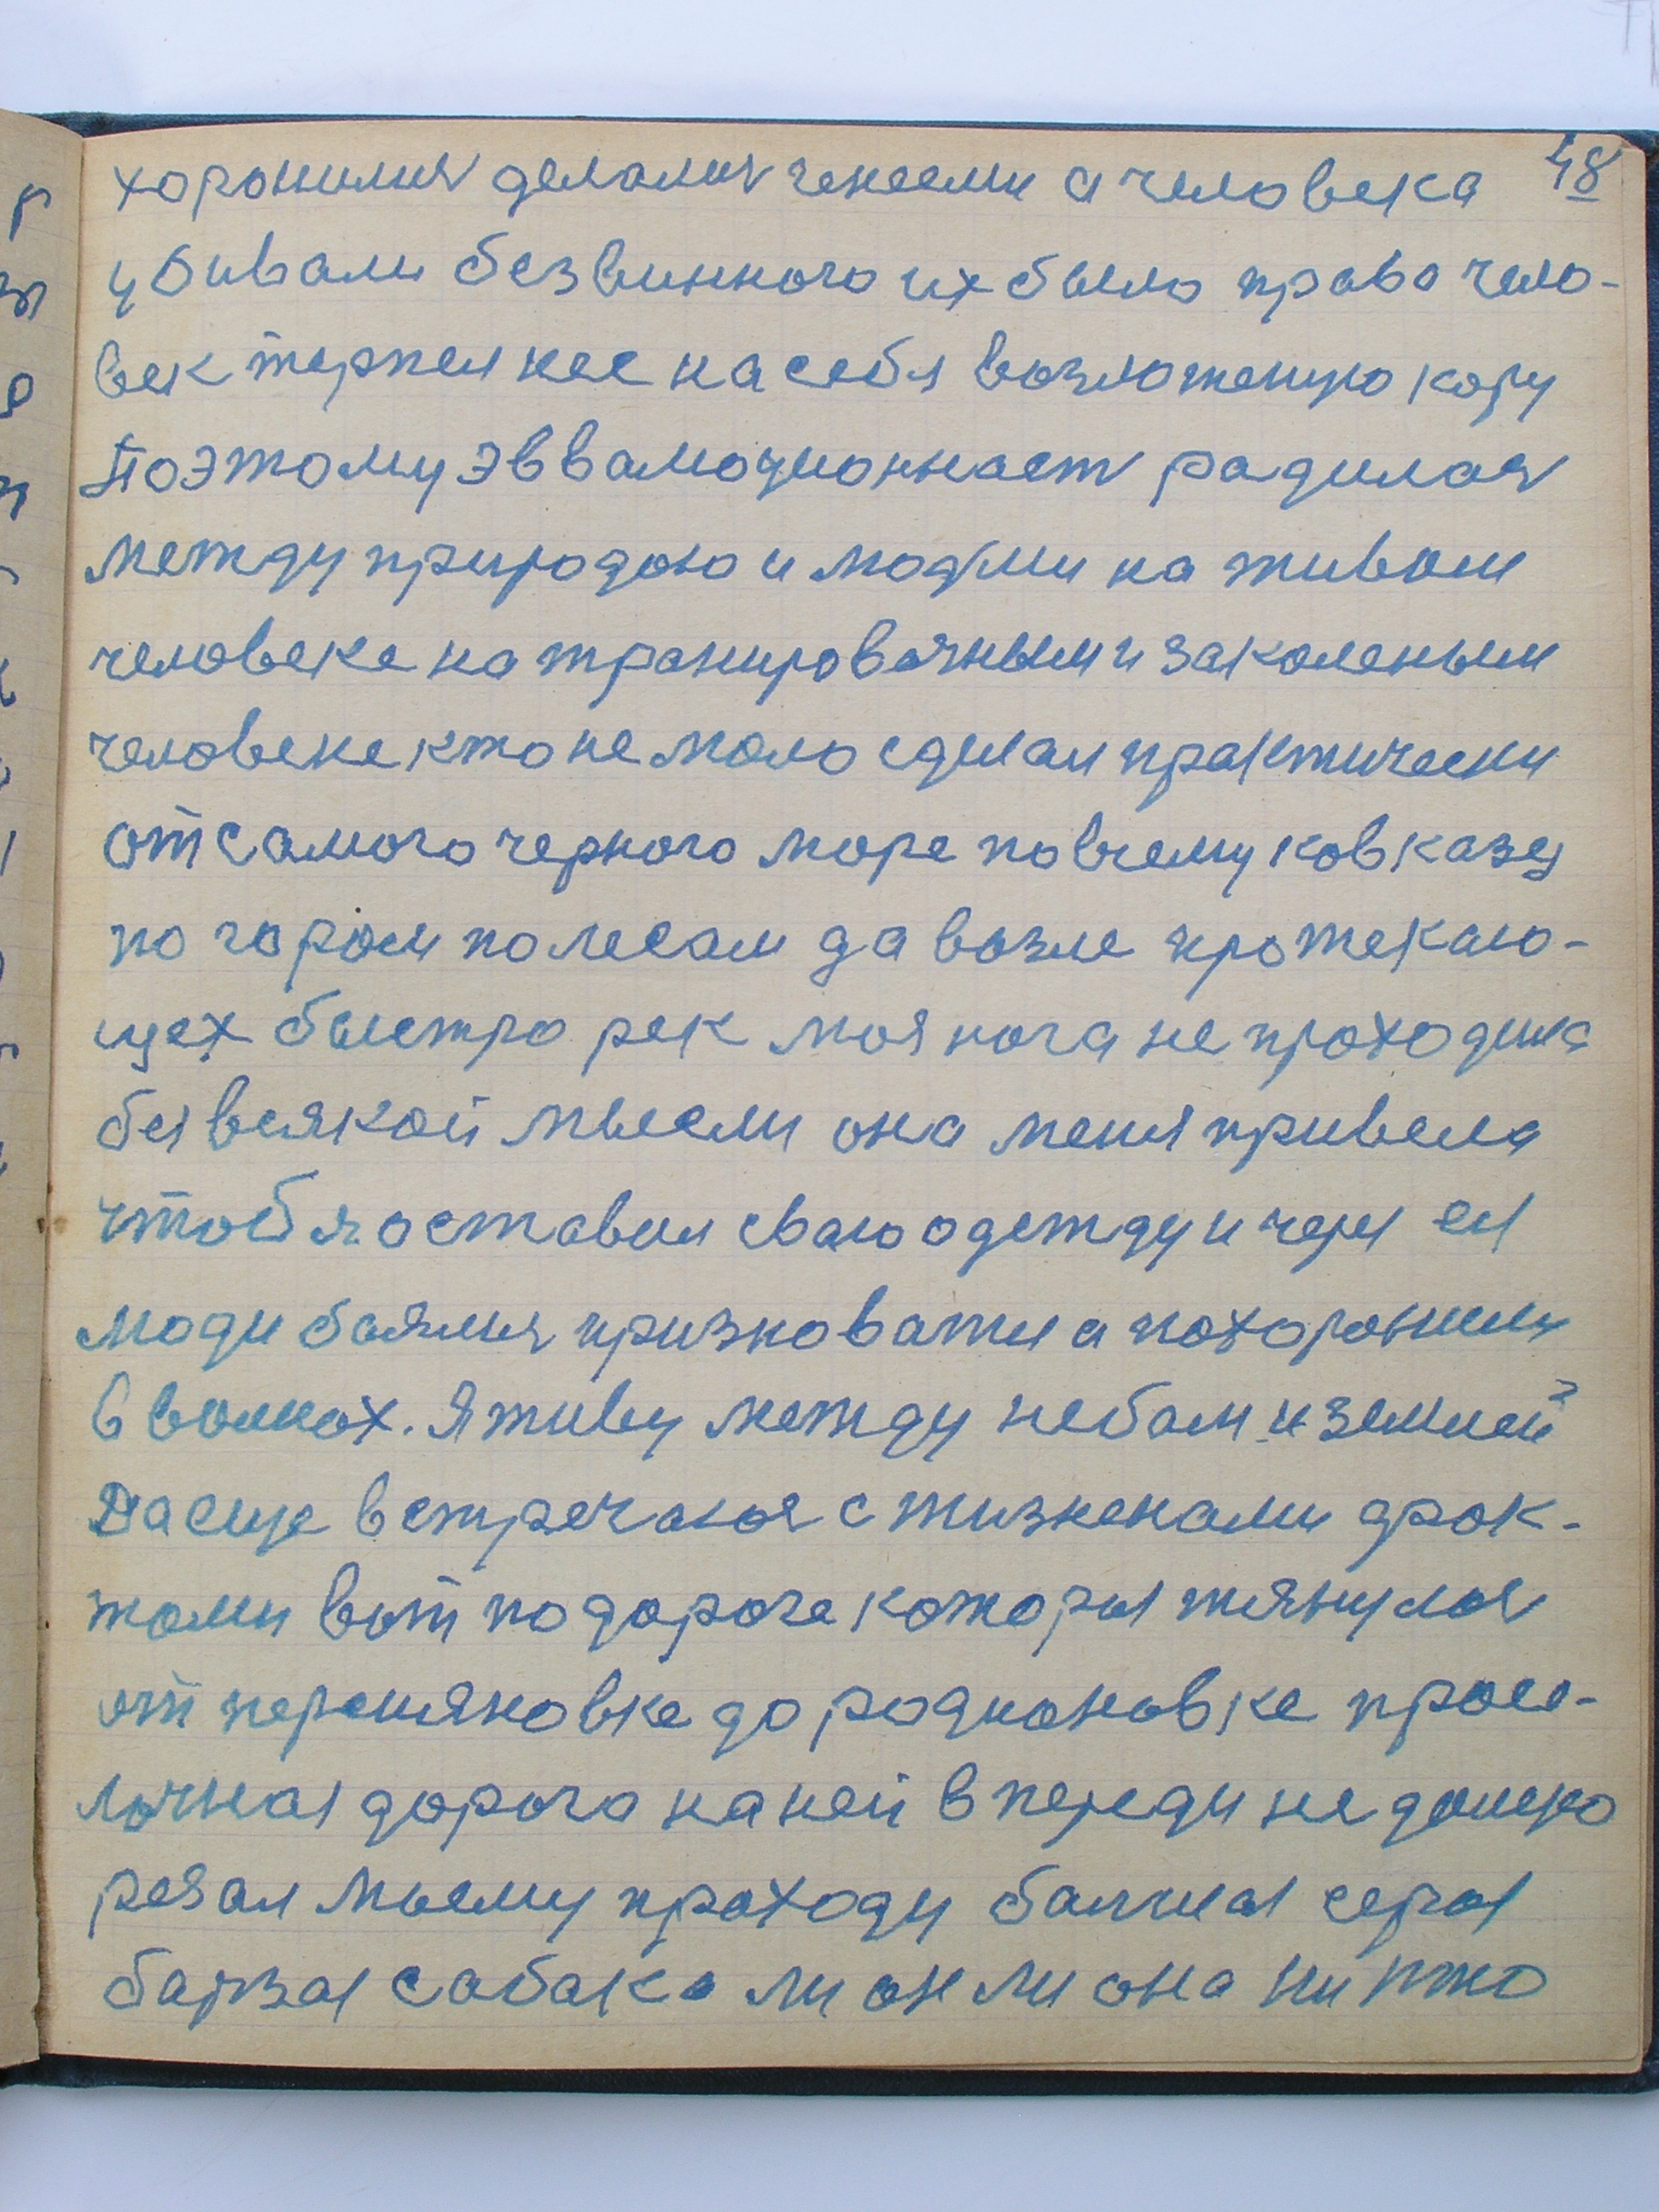 48
хоронился делался генеем а человека
убивали безвинного их было право чело-
век терпел нее на себя возложеную кару
Поэтому эввалюционнаст радилася
между природою и людми на живом
человеке на транированым и закаленым
человеке кто не мало сделал практически
от самого черного море по всему ковказу
по горам по лесам да возле протекаю-
щех быстро рек моя нога не проходила
без всякой мысли она меня привела
чтоб я оставил сваю одежду и через ея
люди боялися призноватся а похоронили
в волнах. Я живу между небам и землей
Да еще встречался с жизнеками фрак-
тами вот по дороге которая тянулася
от первозвановке до родионовке просе-
лочная дорога на ней впереди не далеко
резал моему проходу балшая серая
барзая сабака ли он ли она ни што